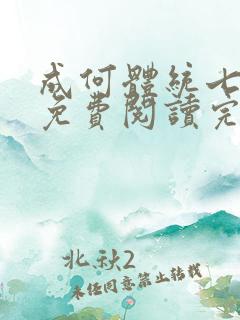 成何體統七
免費閱讀完
北秋2
未经同意禁止转载